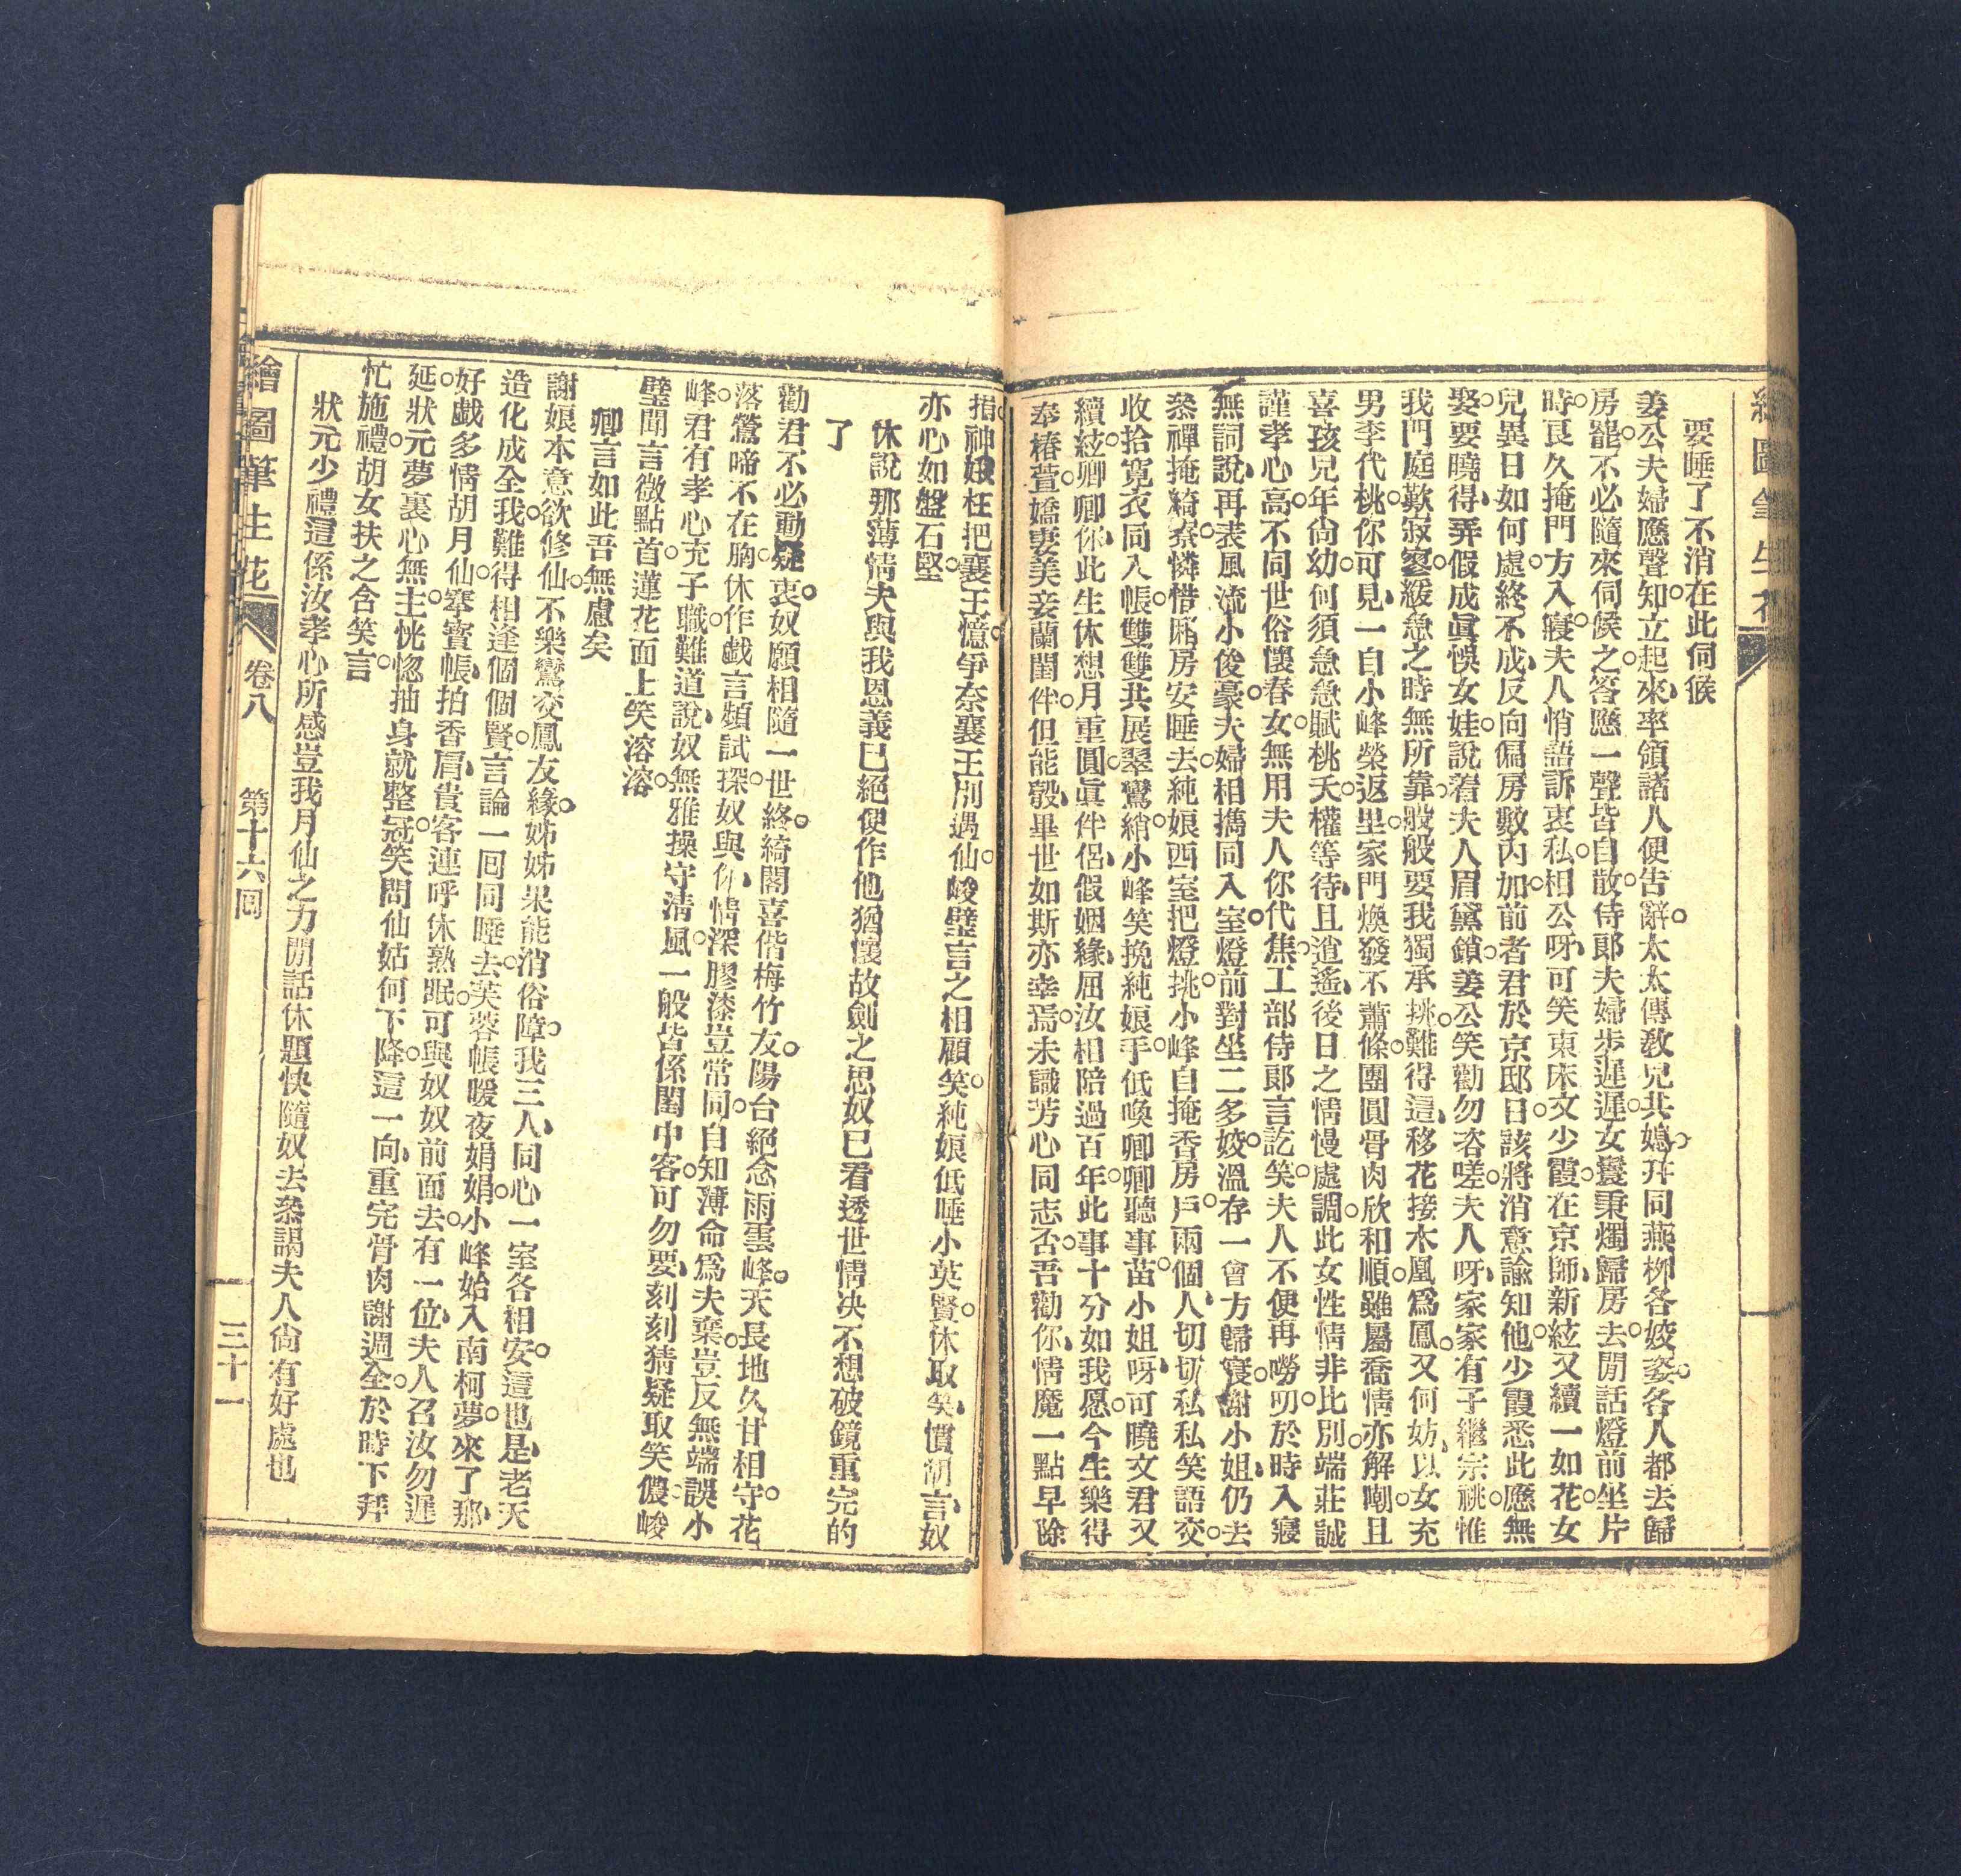 要睡了不消在此伺候
姜公夫婦應聲知立起來率領諸人便告辭太太傳教兄共媳幷同燕柳各姣姿各人都去歸
房罷不必隨來伺候之答應一聲皆自散侍郎夫婦步遲遲女鬟秉燭歸房去閒話燈前坐片
時良久掩門方入寢夫人悄語訴衷私相公呀可笑東床文少霞在京師新絃又續一如花女
兒異日如何處終不成反向偏房數內加前者君於京邸日該將消意諭知他少霞悉此應無
娶要曉得弄假成眞悞女娃說着夫人眉黛鎖姜公笑勸勿咨嗟夫人呀家家有子繼宗祧惟
我門庭歎寂寥緩急之時無所靠般般要我獨承挑難得這移花接木凰爲鳳又何妨以女充
男李代桃你可見一自小峰榮返里家門煥發不蕭條團圓骨肉欣和順雖屬喬情亦解嘲且
喜孩兒年尙幼何須急急賦桃夭權等待且逍遙後日之情慢處調此女性情非比別端莊誠
謹孝心高不同世俗懷春女無用夫人你代焦工部侍郎言訖笑夫人不便再嘮叨於時入寢
無詞說再表風流小俊豪夫婦相攜同入室燈前對坐二多姣溫存一會方歸寢謝小姐仍去
叅禪掩綺寮憐惜厢房安睡去純娘西室把燈挑小峰自掩香房戶兩個人切切私私笑語交
收拾寬衣同入帳雙雙共展翠鸞綃小峰笑挽純娘手低喚卿卿聽事苗小姐呀可曉文君又
續絃卿卿你此生休想月重圓眞伴侶假姻緣屈汝相陪過百年此事十分如我愿今生樂得
奉椿萱嬌妻美妾蘭閨伴但能彀畢世如斯亦幸焉未識芳心同志否吾勸你情魔一點早除
捐神娥枉把襄王憶爭奈襄王別遇仙峻璧言之相顧笑純娘低唾小英賢休取笑慣胡言奴
亦心如盤石堅
休說那薄情夫與我恩義已絕便作他猶懷故劍之思奴已看透世情決不想破鏡重完的
了
勸君不必動疑衷奴願相隨一世終綺閣喜偕梅竹友陽台絕念雨雲峰天長地久甘相守花
落鶯啼不在胸休作戲言頻試探奴與你情深膠漆豈常同自知薄命爲夫棄豈反無端誤小
峰君有孝心充子職難道說奴無雅操守清風一般皆係閨中客可勿要刻刻猜疑取笑儂峻
璧聞言微點首蓮花面上笑溶溶
卿言如此吾無慮矣
謝娘本意欲修仙不樂鸞交鳳友緣姊姊果能消俗障我三人同心一室各相安這也是老天
造化成全我難得相逢個個賢言論一回同睡去芙蓉帳暖夜娟娟小峰始入南柯夢來了那
好戯多情胡月仙搴寳帳拍香肩貴客連呼休熟眠可與奴奴前面去有一位夫人召汝勿遲
延狀元夢裏心無主恍惚抽身就整冠笑問仙姑何下降這一向重完骨肉謝週全於時下拜
忙施禮胡女扶之含笑言
狀元少禮這係汝孝心所感豈我月仙之力閒話休題快隨奴去叅謁夫人尙有好處也
繪圖筆生花 卷八 第十六回 三十一